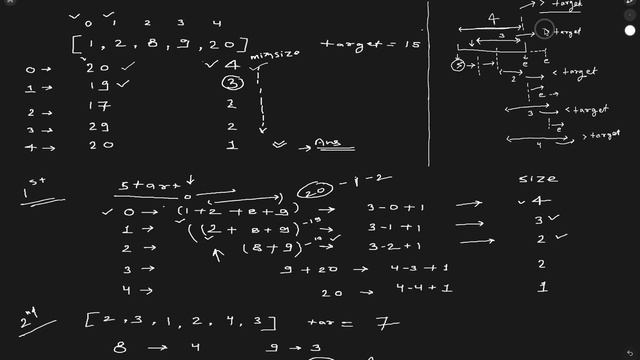 0 1 2 3 4
[1, 2, 8, 9, 20] target = 15
minsize
0 → 20 4
1 → 19 3
2 → 17 2
3 → 29 2
4 → 20 1 → Ans
> target
4
> target
3
s e e
2 < target
e →
3 < target
e
4 > target
1st
start 20 -1-2 size
0
0 → (1+2+8+9) → 3-0+1 → 4
1 → ((2+8+9)-19 → 3-1+1 → 3
2 → (8+9) → 3-2+1 → 2
3 → 9+20 → 4-3+1 2
4 → 20 → 4-4+1 1
2nd [2,3,1,2,4,3] tar = 7
8 → 4 9 → 3